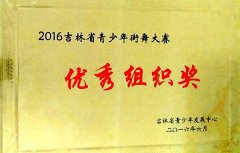 2016吉林省青少年街舞大赛
优秀组织奖
吉林省青少年发展中心
二〇一六年六月